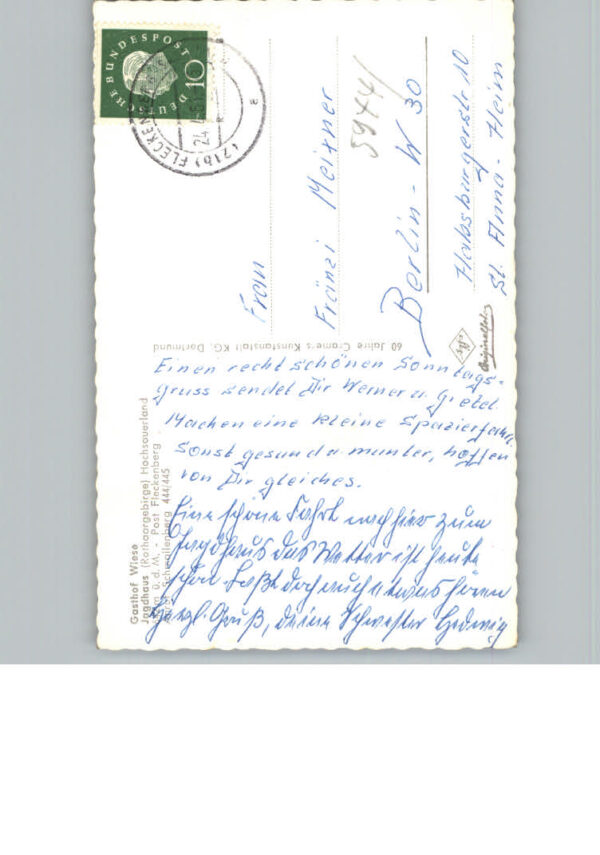 DEUTSCHE BUNDESPOST
10
(21b) FLECKENBE
24
a
5944/
Frau
Fränzi Meixner
Berlin - W 30
Habsburgerstr 10
St. Anna - Heim
60 Jahre Cramers Kunstanstalt KG, Dortmund
Originalfoto
Einen recht schönen Sonntags-
Gruss sendet Dir Werner u. Gretel
Machen eine kleine Spazierfahrt
Sonst gesund u munter, hoffen
von Dir gleiches.
Eine schöne Fahrt nach hier zum
Jagdhaus das Wetter ist heute
schön Laßt doch auch etwas hören
Herzl. Gruß, deine Schwester Hedwig
Gasthof Wiese
Jagdhaus (Rothaargebirge) Hochsauerland
ü. d. M. - Post Fleckenberg
Schmallenberg 444/445